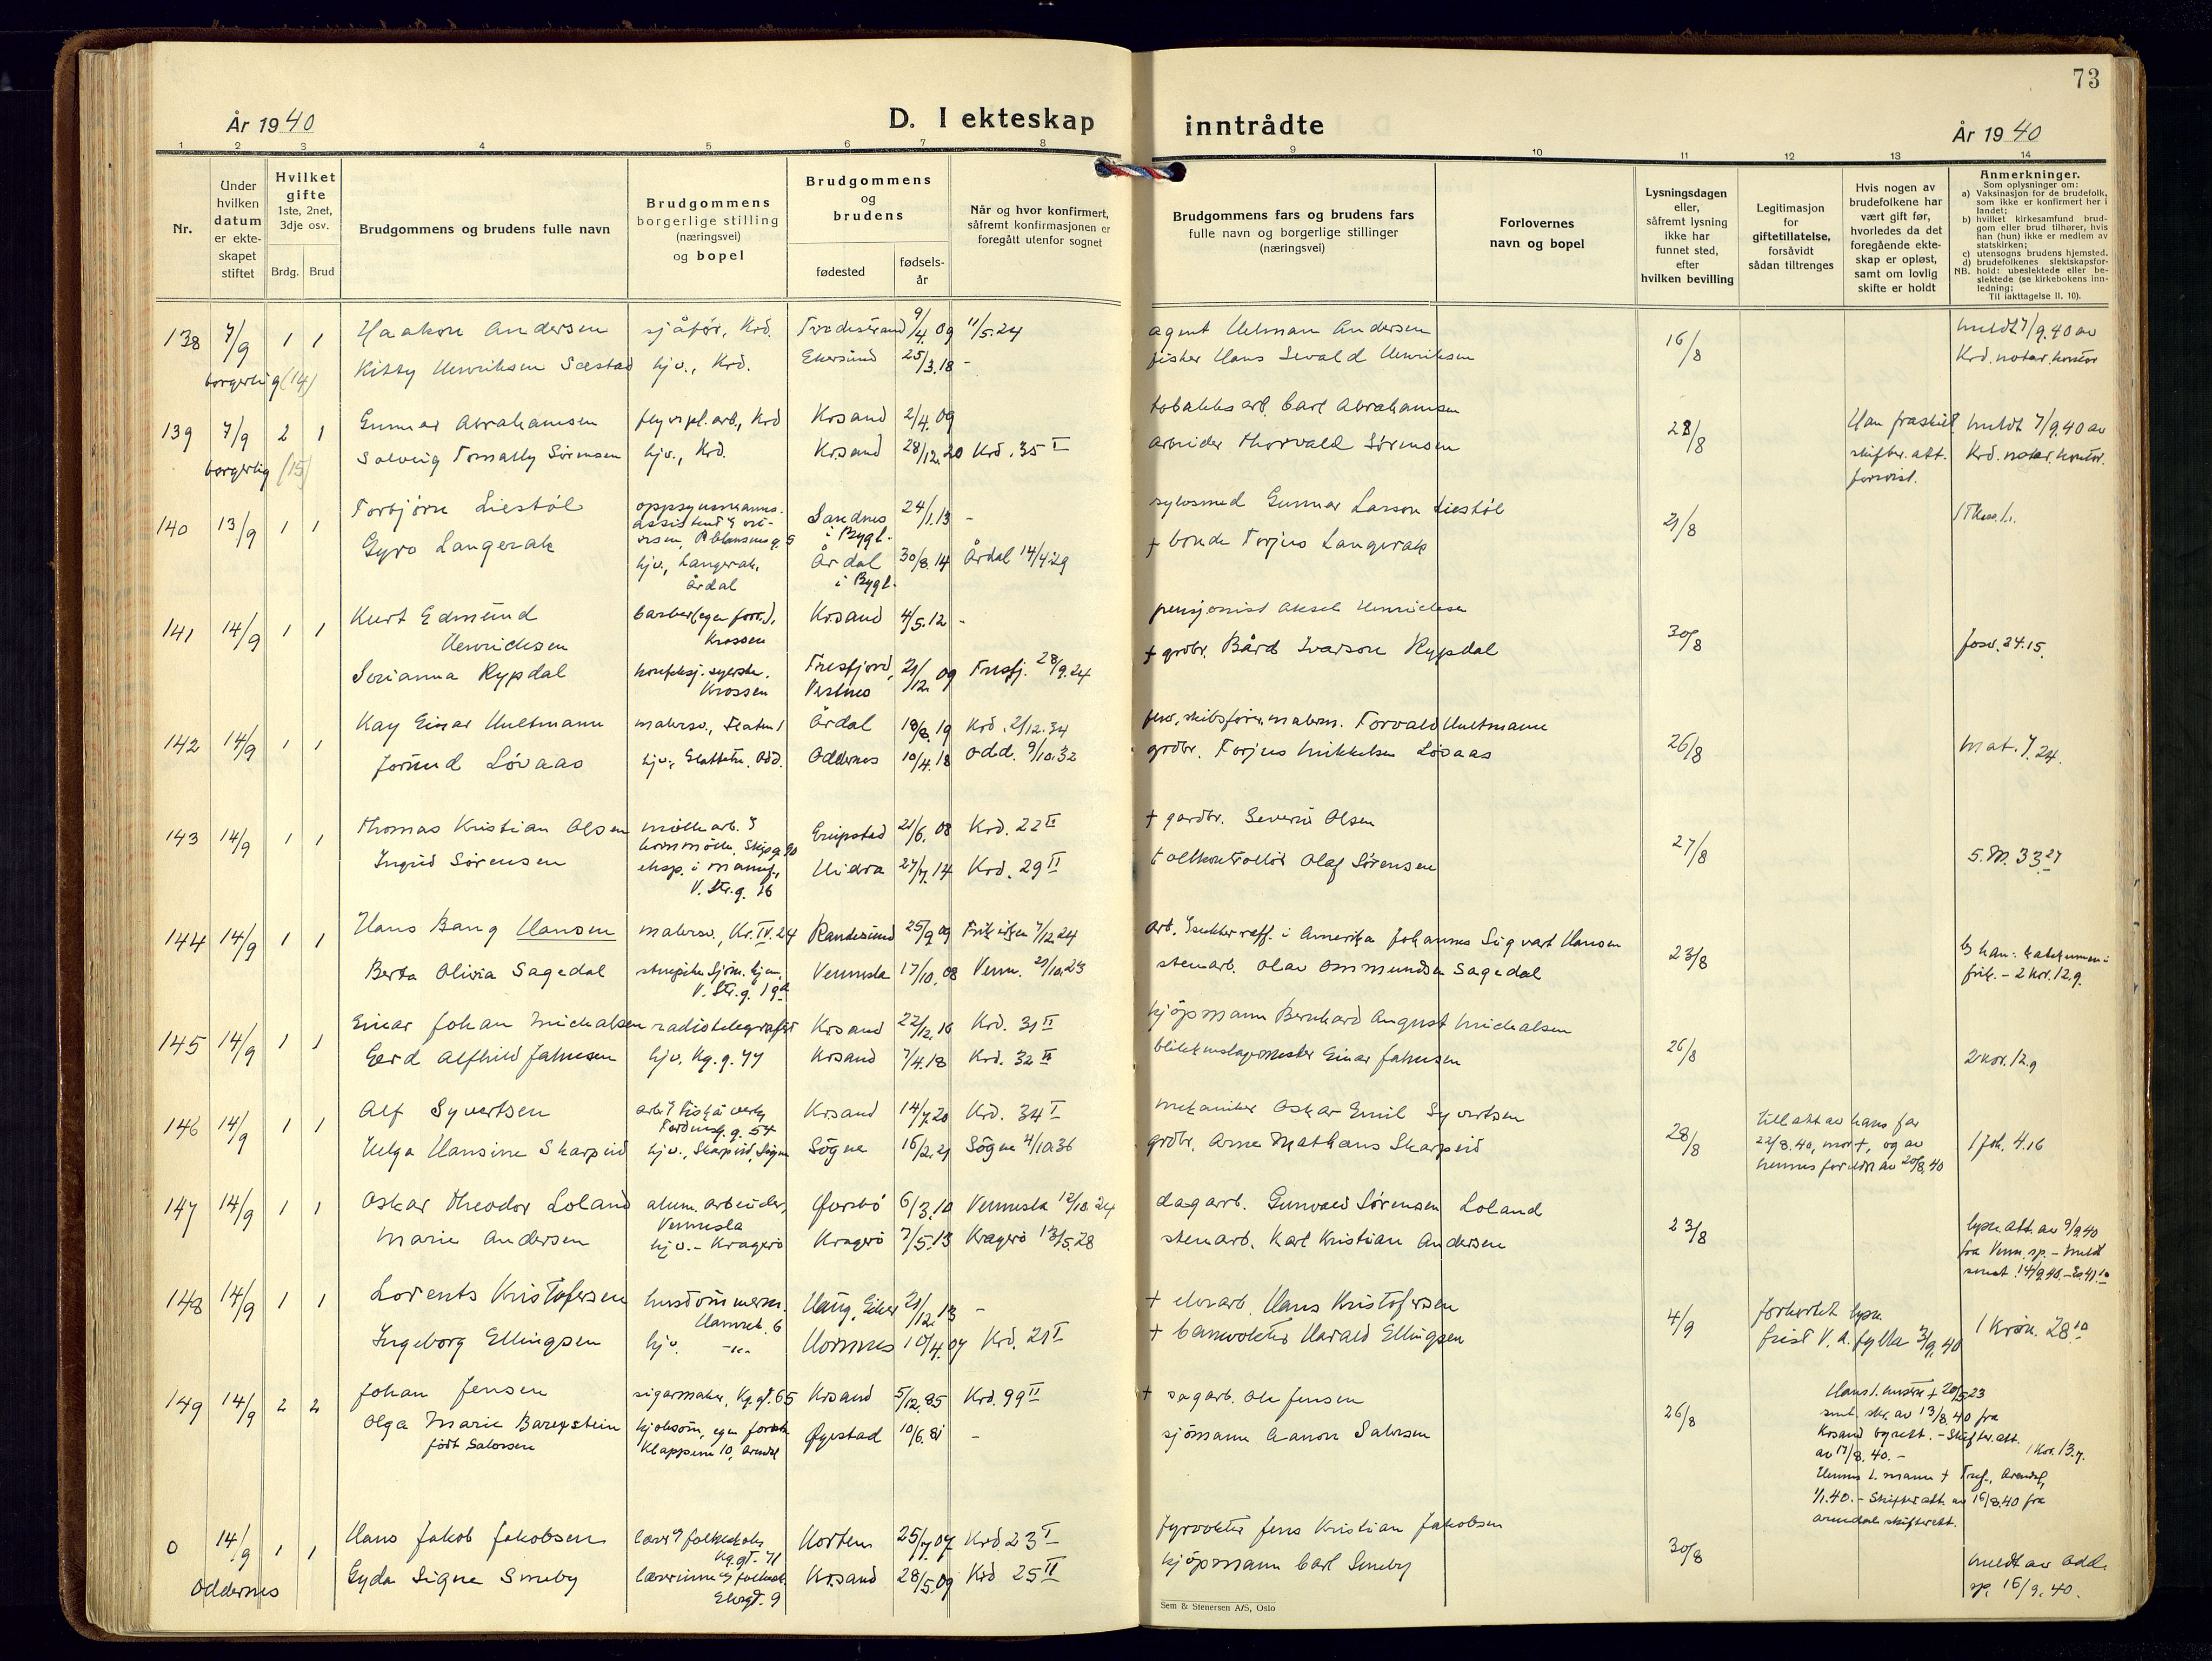 73
År 1940
D. I ekteskap
inntrådte
År 1940
1 2 3 4 5 6 7 8 9 10 11 12 13 14
Nr.
Under
hvilken
datum
er ekte-
skapet
stiftet
Hvilket
gifte
1ste, 2net,
3dje osv.
Brdg. Brud
Brudgommens og brudens fulle navn
Brudgommens
borgerlige stilling
(næringsvei)
og bopel
Brudgommens
og
brudens
fødested
fødsels-
år
Når og hvor konfirmert,
såfremt konfirmasjonen er
foregått utenfor sognet
Brudgommens fars og brudens fars
fulle navn og borgerlige stillinger
(næringsvei)
Forlovernes
navn og bopel
Lysningsdagen
eller,
såfremt lysning
ikke har
funnet sted,
efter
hvilken bevilling
Legitimasjon
for
giftetillatelse,
forsåvidt
sådan tiltrenges
Hvis nogen av
brudefolkene har
vært gift før,
hvorledes da det
foregående ekte-
skap er opløst,
samt om lovlig
skifte er holdt
Anmerkninger.
Som oplysninger om:
a) Vaksinasjon for de brudefolk,
som ikke er konfirmert her i
landet;
b) hvilket kirkesamfund brud-
gom eller brud tilhører, hvis
han (hun) ikke er medlem av
statskirken;
c) utensogns brudens hjemsted.
d) brudefolkenes slektskapsfor-
NB. hold: ubeslektede eller be-
slektede (se kirkebokens inn-
ledning;
Til iakttagelse II. 10).
138 7/9 1 1 Haakon Andersen sjåfør, Krd. Tvedestrand 9/4.09 11/5.24 agent Helman Andersen 16/8 meldt 7/9.40 av
Kitty Henriksen Sæstad hjv., Krd. Ekersund 25/3.18 - fisker Hans Sevald Henriksen Krd. notar. kontor
borgerlig (14)
139 7/9 2 1 Gunnar Abrahamsen Krd Krsand 2/4.09 tobakksarb. Carl Abrahamsen 28/8 Han fraskilt meldt 7/9.40 av
Solveig Tomally Sørensen hjv., Krd. Krsand 28/12.20 Krd. 35 I arbeider Thorvald Sørensen skifter. att. Krd. notar. kontor.
borgerlig (15) forevist.
140 13/9 1 1 Torbjørn Liestøl oppsynsmanns- Sandnes 24/1.13 - sølvsmed Gunnar Larson Liestøl 21/8
assistent i Bygl.
Gyro Langerak hjv., Langerak, Årdal 30/8.14 Årdal 14/4.29 + bonde Torjus Langerak
Årdal i Bygl.
141 14/9 1 1 Kurt Edmund barber (egen forr.), Krsand 4/5.12 - pensjonist Aksel Henrichsen 30/8 Josv. 24.15.
Henrichsen Krossen
Serianna Rypdal konfeksj. syerske. Tresfjord, 21/12.09 Tresfj. 28/9.24 + grdbr. Bård Ivarson Rypdal
Krossen Vestnes
142 14/9 1 1 Kay Einar Hultmann malersv., Årdal 18/8.19 Krd. 2/12.34 Torvald Hultmann 26/8 Mat. 7.24.
Jorund Løvaas hjv., Slettehei. Odd. Oddernes 10/4.18 Odd. 9/10.32 grdbr. Torjus Mikkelsen Løvaas
143 14/9 1 1 Thomas Kristian Olsen mølle arb. Eripstad 21/6.08 Krd. 22 II + gardbr. Severin Olsen 27/8 5. M. 33.27
Ingrid Sørensen eksp. i manuf., Hidra 27/7.14 Krd. 29 II tollkontrollør Olaf Sørensen
V. Str.g. 16
144 14/9 1 1 Hans Bang Hansen malersv., Kr. IV. 24 Randesund 25/9.09 Frikirken 7/12.24 arb. i Amerika Johannes Sigvart Hansen 23/8
Berta Olivia Sagedal Vennesla 17/10.08 Venn. 21/10.23 stenarb. Olav Ommundsen Sagedal frik. - 2 Kor. 12.9.
V. Str.g. 19a
145 14/9 1 1 Einar Johan Michalsen radiotelegrafist Krsand 22/12.16 Krd. 31 II kjøpmann Bernhard August Michalsen 26/8 2 Kor. 12.9
Gerd Alfhild Jahnsen hjv. Kg.g. 77 Krsand 7/4.18 Krd. 32 II blikkenslagermester Einar Jahnsen
146 14/9 1 1 Alf Syvertsen Krsand 14/7.20 Krd. 34 I mekaniker Oskar Emil Syvertsen 28/8 till. att. av hans far
22/8.40, mor +, og av 1 Joh. 4.16
Helga Hansine Skarpeid hjv., Skarpeid, Søgne Søgne 16/2.21 Søgne 4/10.36 grdbr. Arne Mathæus Skarpeid hennes foreldre av 20/8.40
147 14/9 1 1 Oskar Theodor Loland alum. arbeider, Øvrebø 6/3.10 Vennesla 12/10.24 dagarb. Gunvald Sørensen Loland 23/8 lysn. att. av 9/9.40
Vennesla fra Venn. sp. - meldt
Marie Andersen hjv. - Kragerø Kragerø 7/5.13 Kragerø 13/5.28 stenarb. Karl Kristian Andersen
148 14/9 1 1 Lorents Kristofersen Haug, Eiker 21/12.13 - + elvearb. Hans Kristofersen 4/9 forkortet lysn.
Ingeborg Ellingsen hjv. -"- Hornnes 10/4.07 Krd. 21 I + banevokter Harald Ellingsen frist V. A. fylke 3/9.40 1 Krøn. 28.10
149 14/9 2 2 Johan Jensen sigarmaker, Kg.gt. 65 Krsand 5/12.85 Krd. 99 II + sagarb. Ole Jensen 26/8 Hans 1. hustru + 20/5.23
Olga Marie Barexstein Øyestad 10/6.81 - sjømann Aanon Salvesen
født Salvesen Klappene 10, Arendal
smt. skr. av 13/8.40 fra
Krsand byrett. - Skifter. att.
av 17/8.40. - 1 Kor. 13.7.
Hennes 1. mann + Arendal,
1/1.40. - Skifter att. av 16/8.40 fra
Arendal skifterett.
0 14/9 1 1 Hans Jakob Jakobsen lærer folkeskole Horten 25/7.07 Krd 23 I fyrvokter Jens Kristian Jakobsen 30/8 meldt av Odd.
Kg.gt. 71
Oddernes Gyda Signe Smeby lærerinne folkesk. Krsand 28/5.09 Krd 25 II kjøpmann Carl Smeby sp. 16/9.40.
Elvegt. 9
Sem & Stenersen A/S, Oslo